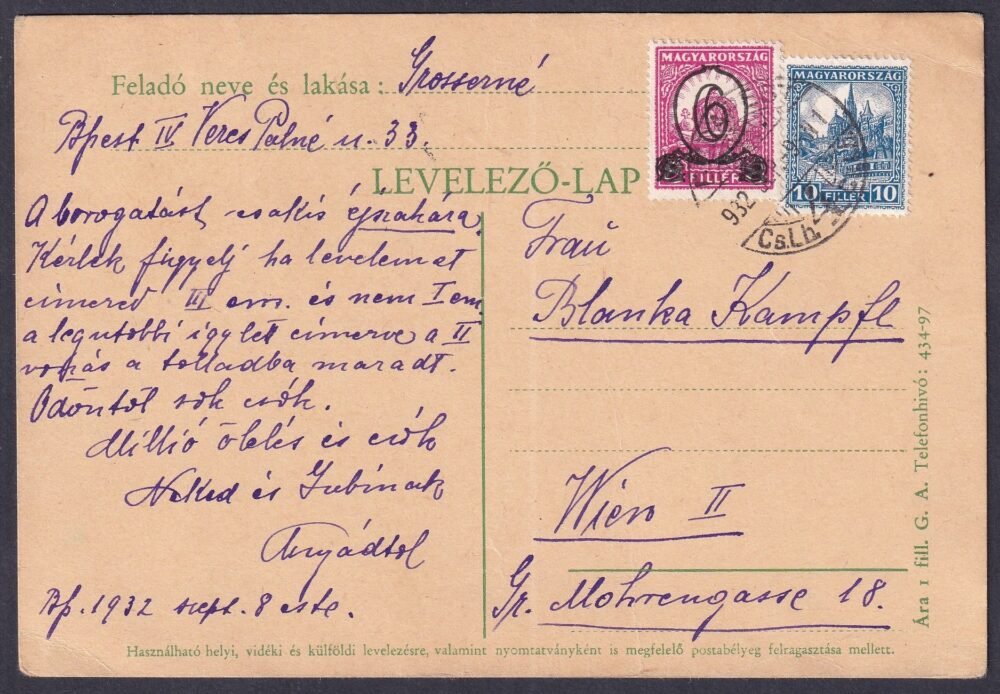 Feladó neve és lakása: Grosserné
Bpest IV Veres Palné u. 33.
LEVELEZŐ-LAP
A borogatást csakis éjszakára.
Kérlek figyelj ha levelemet
címezed III em. és nem I em.
a legutobbi
a II
vonás a tolladba maradt.
Ödöntöl sok csók.
Millió ölelés és csók
Neked és Gubinak
Anyádtol
Bp. 1932 szept. 8 este.
MAGYARORSZÁG
6
FILLÉR
MAGYARORSZÁG
10 FILLÉR 10
932
Cs.Lh.
Frau
Blanka Kampfl
Wien II
Gr. Mohrengasse 18.
Ára 1 fill. G. A. Telefonhivó: 434-97
Használható helyi, vidéki és külföldi levelezésre, valamint nyomtatványként is megfelelő postabélyeg felragasztása mellett.